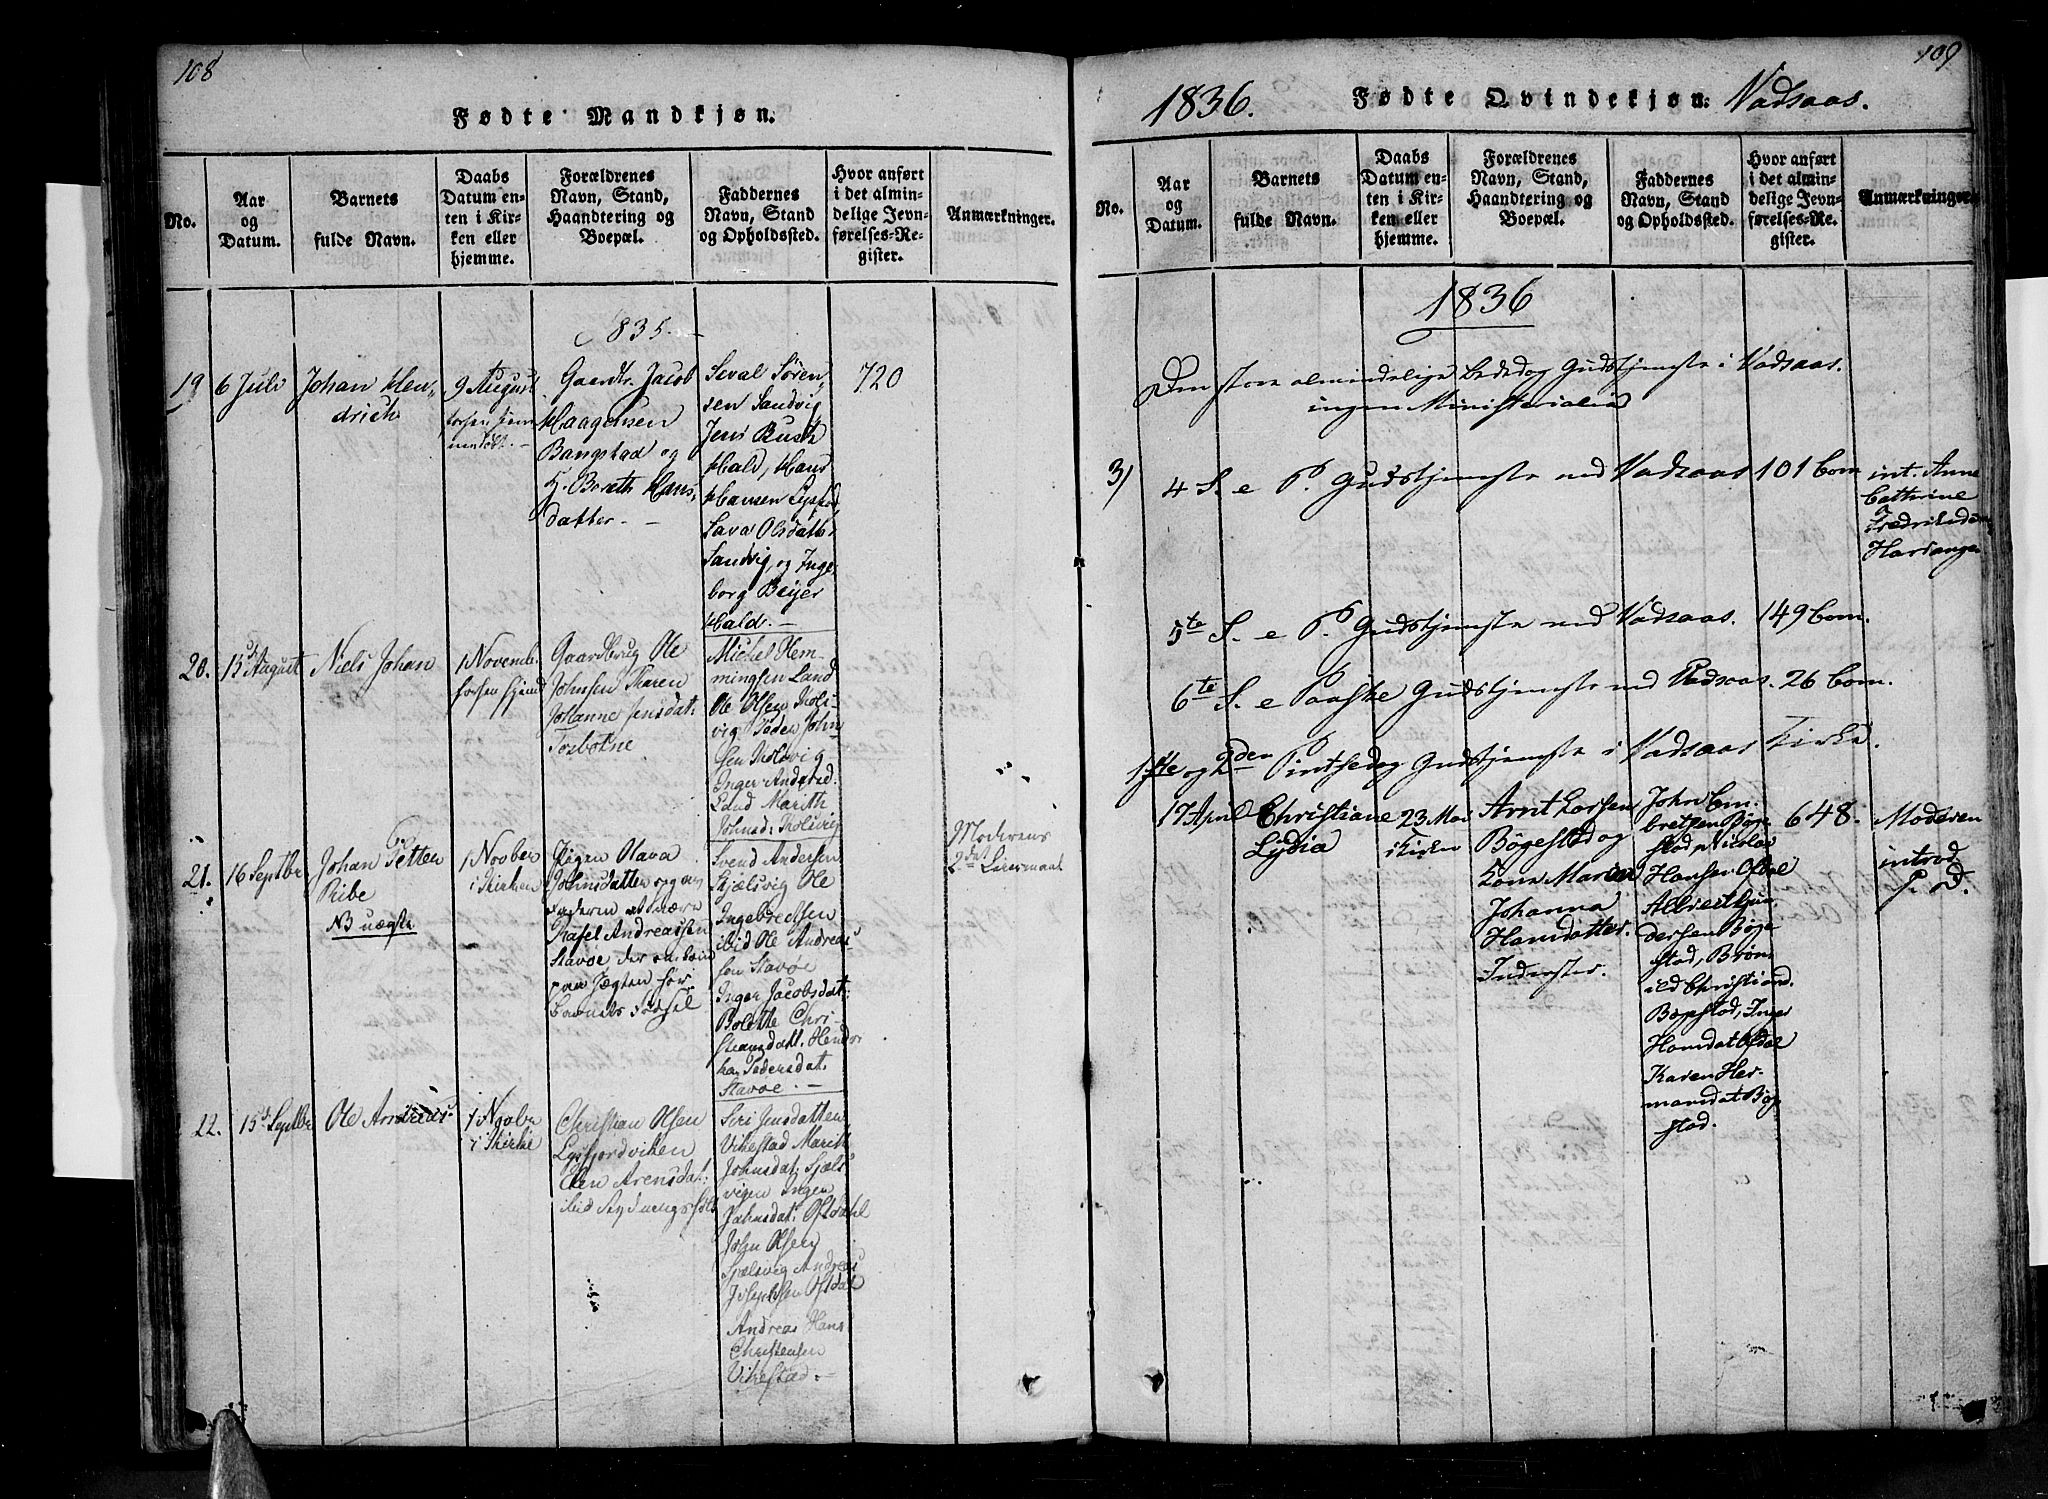 108
Fødte Mandkjøn.
No.
Aar
og
Datum.
Barnets
fulde Navn.
Daabs
Datum en-
ten i Kir-
ken eller
hjemme.
Forældrenes
Navn, Stand,
Haandtering og
Boepæl.
Faddernes
Navn, Stand
og Opholdssted.
Hvor anført
i det almin-
delige Jevn-
førelses-Re-
gister.
Anmærkninger.
1835.
19
6 Juli
Johan Hen-
drich
9 August
Jacob
Haagensen
Bangstad og
K. Bereth Hans-
datter.
Sival Søren-
sen Sandvig
Jens Busch
Hald, Hans
Hansen
Sava Olsdatter
Sandvig, og Inge-
borg Beijer
Hald.
720
20.
13 August
Niels Johan
1 Novemb.
Gaardbrug Ole
Johnsen Karen
Johanne Jensdat:
Forbotne
Michel Hem-
mingsen Land
Ole Olsen
vig Peder John
sen
Inger Andersd.
Land Marith
Johnsd:
21.
16 Septbr
Johan Petter
Ribe
NB uægte
1 Novber
i Kirken
Pigen Olava
Johnsdatter
faderen at være
Andreassen
Stavøe, der omkom
paa Jægten før
Barnets Fødsel
Svend Andersen
Sjælsvig Ole
Ingebredtsen
ibid Ole Andreas
sen Stavøe
Inger Jacobsdat:
Bolette Chri-
stiansdatt.
Pedersdat.
Stavøe.
Moderens
2det Leiermaal
22.
15 Septbr
Ole Andreas
1 Novbr
i Kirke
Christian Olsen
Lysfjordviken
Elen Arensdat:
ibid
Siri Jensdatter
Vikestad Marith
Johnsdat: Sjæls
vigen Inger
Johnsdat:
John Olsen
Sjælsvig Andreas
Josephsen
Andreas Hans
Christensen
Vikestad.
109
1836. Fødte Qvindekjøn: Vadsaas.
No.
Aar
og
Datum.
Barnets
fulde Navn.
Daabs
Datum en-
ten i Kir-
ken eller
hjemme.
Forældrenes
Navn, Stand,
Haandtering og
Boepæl.
Faddernes
Navn, Stand
og Opholdssted.
Hvor anført
i det almin-
delige Jevn-
førelses-Re-
gister.
Anmærkninger.
1836
Den store almindelige Bededag Gudstjeneste i Vadsaas.
ingen Ministerialia
3)
4 S. e P. Gudstjeneste ved Vadsaas 101 Com
int. Anne
Cathrine
5te S. e P. Gudstjeneste ved Vadsaas. 149 Com.
6te S. e Paaske Gudstjeneste ved Vadsaas. 26 Com.
1ste og 2den Pintsedag Gudstjeneste i Vadsaas Kirke.
17 April
Christiane
Lydia
23 Mai
i Kirken
Arnt Larsen
Bøgestad og
Kone Maren
Johanna
Hansdatter.
Inderster.
John Em-
bretsen Bøge
stad, Nicolai
Hansen Ofdal
Albert Gun-
dersen Bøge-
stad,
Christiansd.
Bøgestad, Inger
Hansdat Ofdal
Karen Her-
mansdat Bøge
stad.
648.
Moderen
introd
P. D.